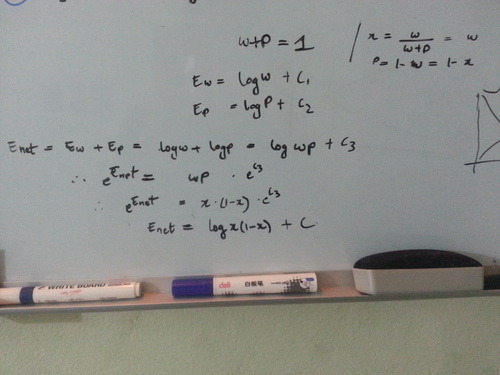 w+p = 1
/ x = w/(w+p) = w
p = 1-w = 1-x
Ew = log w + C1
Ep = log p + C2
Enet = Ew + Ep = log w + log p = log wp + C3
∴ e^Enet = wp · e^C3
∴ e^Enet = x·(1-x)·e^C3
Enet = log x(1-x) + C
WHITE BOARD
deli 白板笔